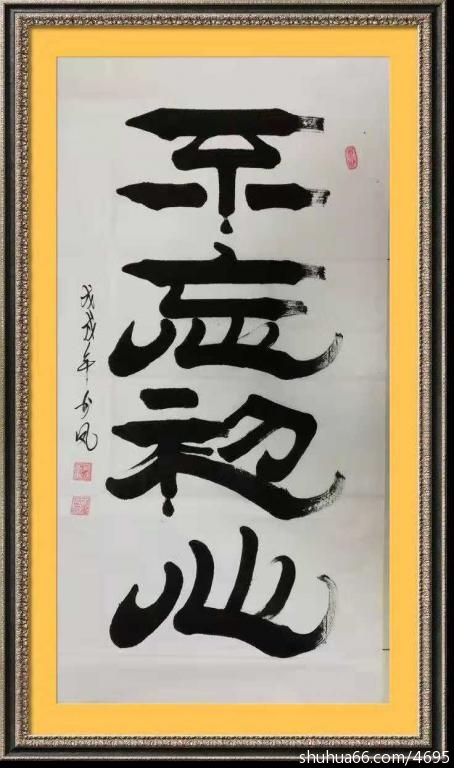 不忘初心
戊戌年 步风
shuhua66.com/4695